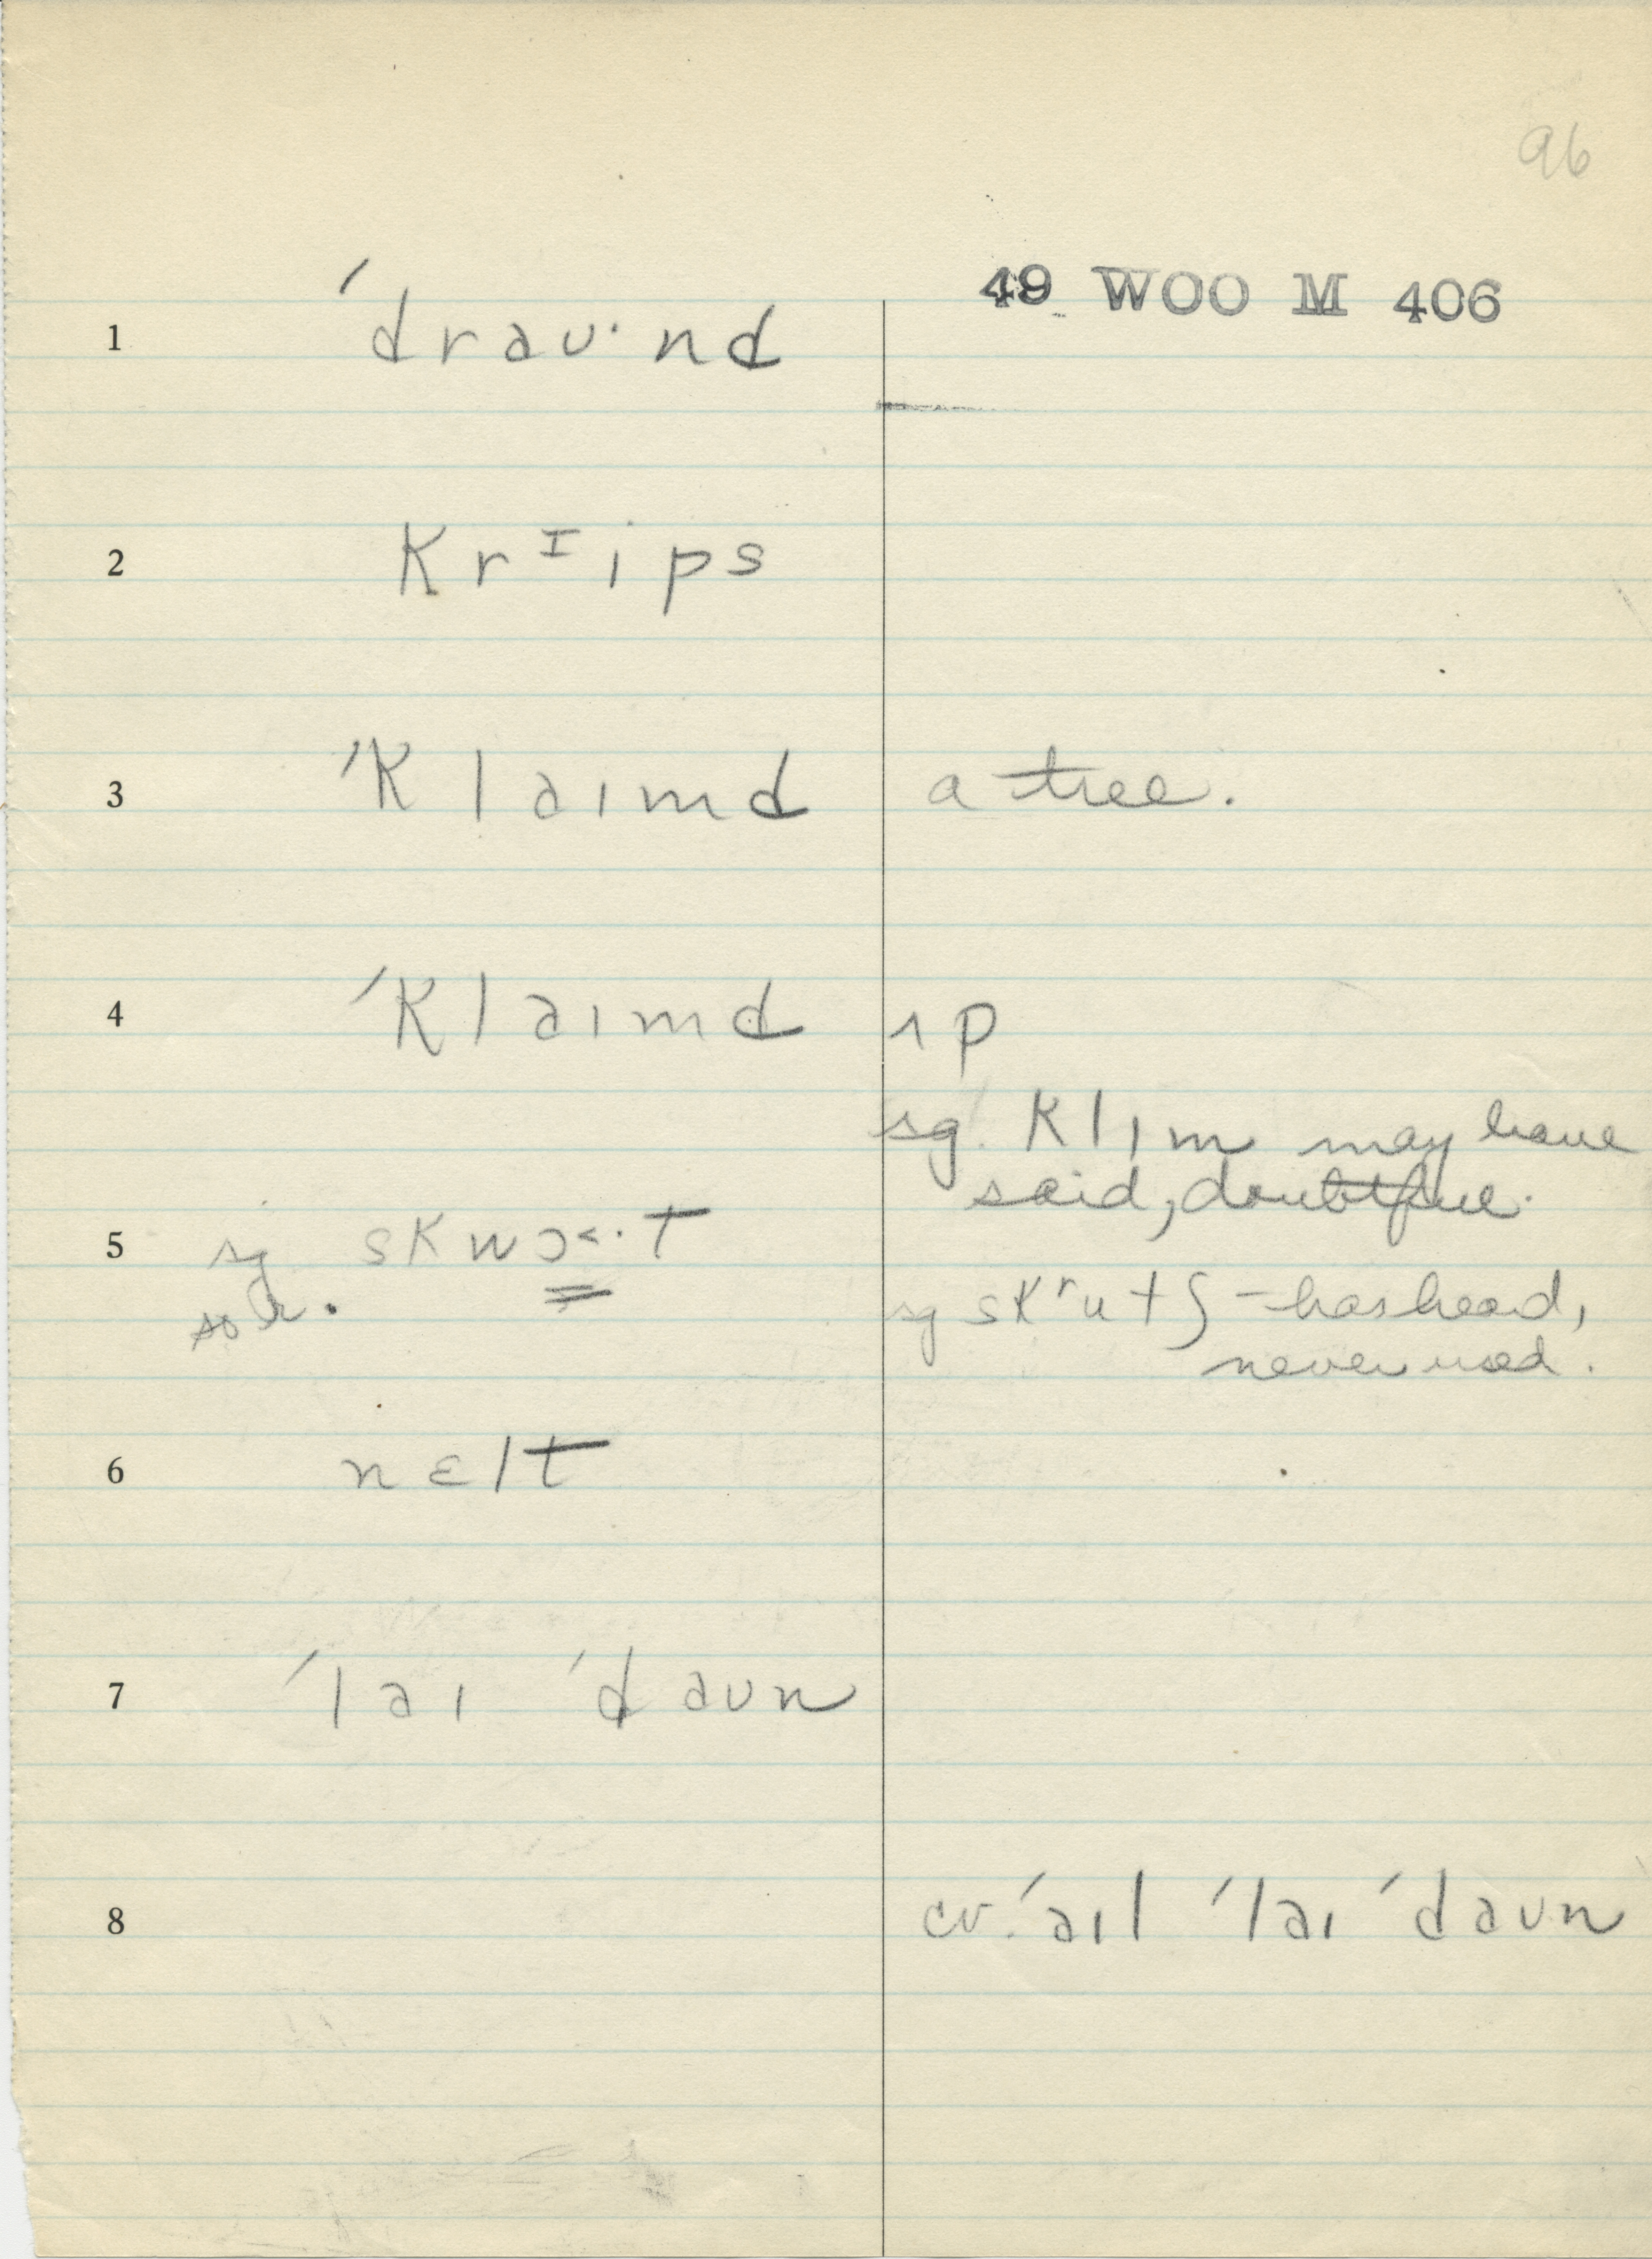 96
49 WOO M 406
1 ˈdraʊ·nd
2 krᶦips
3 ˈklaɪmd a tree.
4 ˈklaɪmd ʌp
sg. klɪm may have
said, doubtful.
5 sg skwɔ˂·t
sg skʳutʃ – has heard,
never used.
6 nɛlt
7 ˈlaɪ ˈdaʊn
8 cv. ˈaɪl ˈlaɪ ˈdaʊn